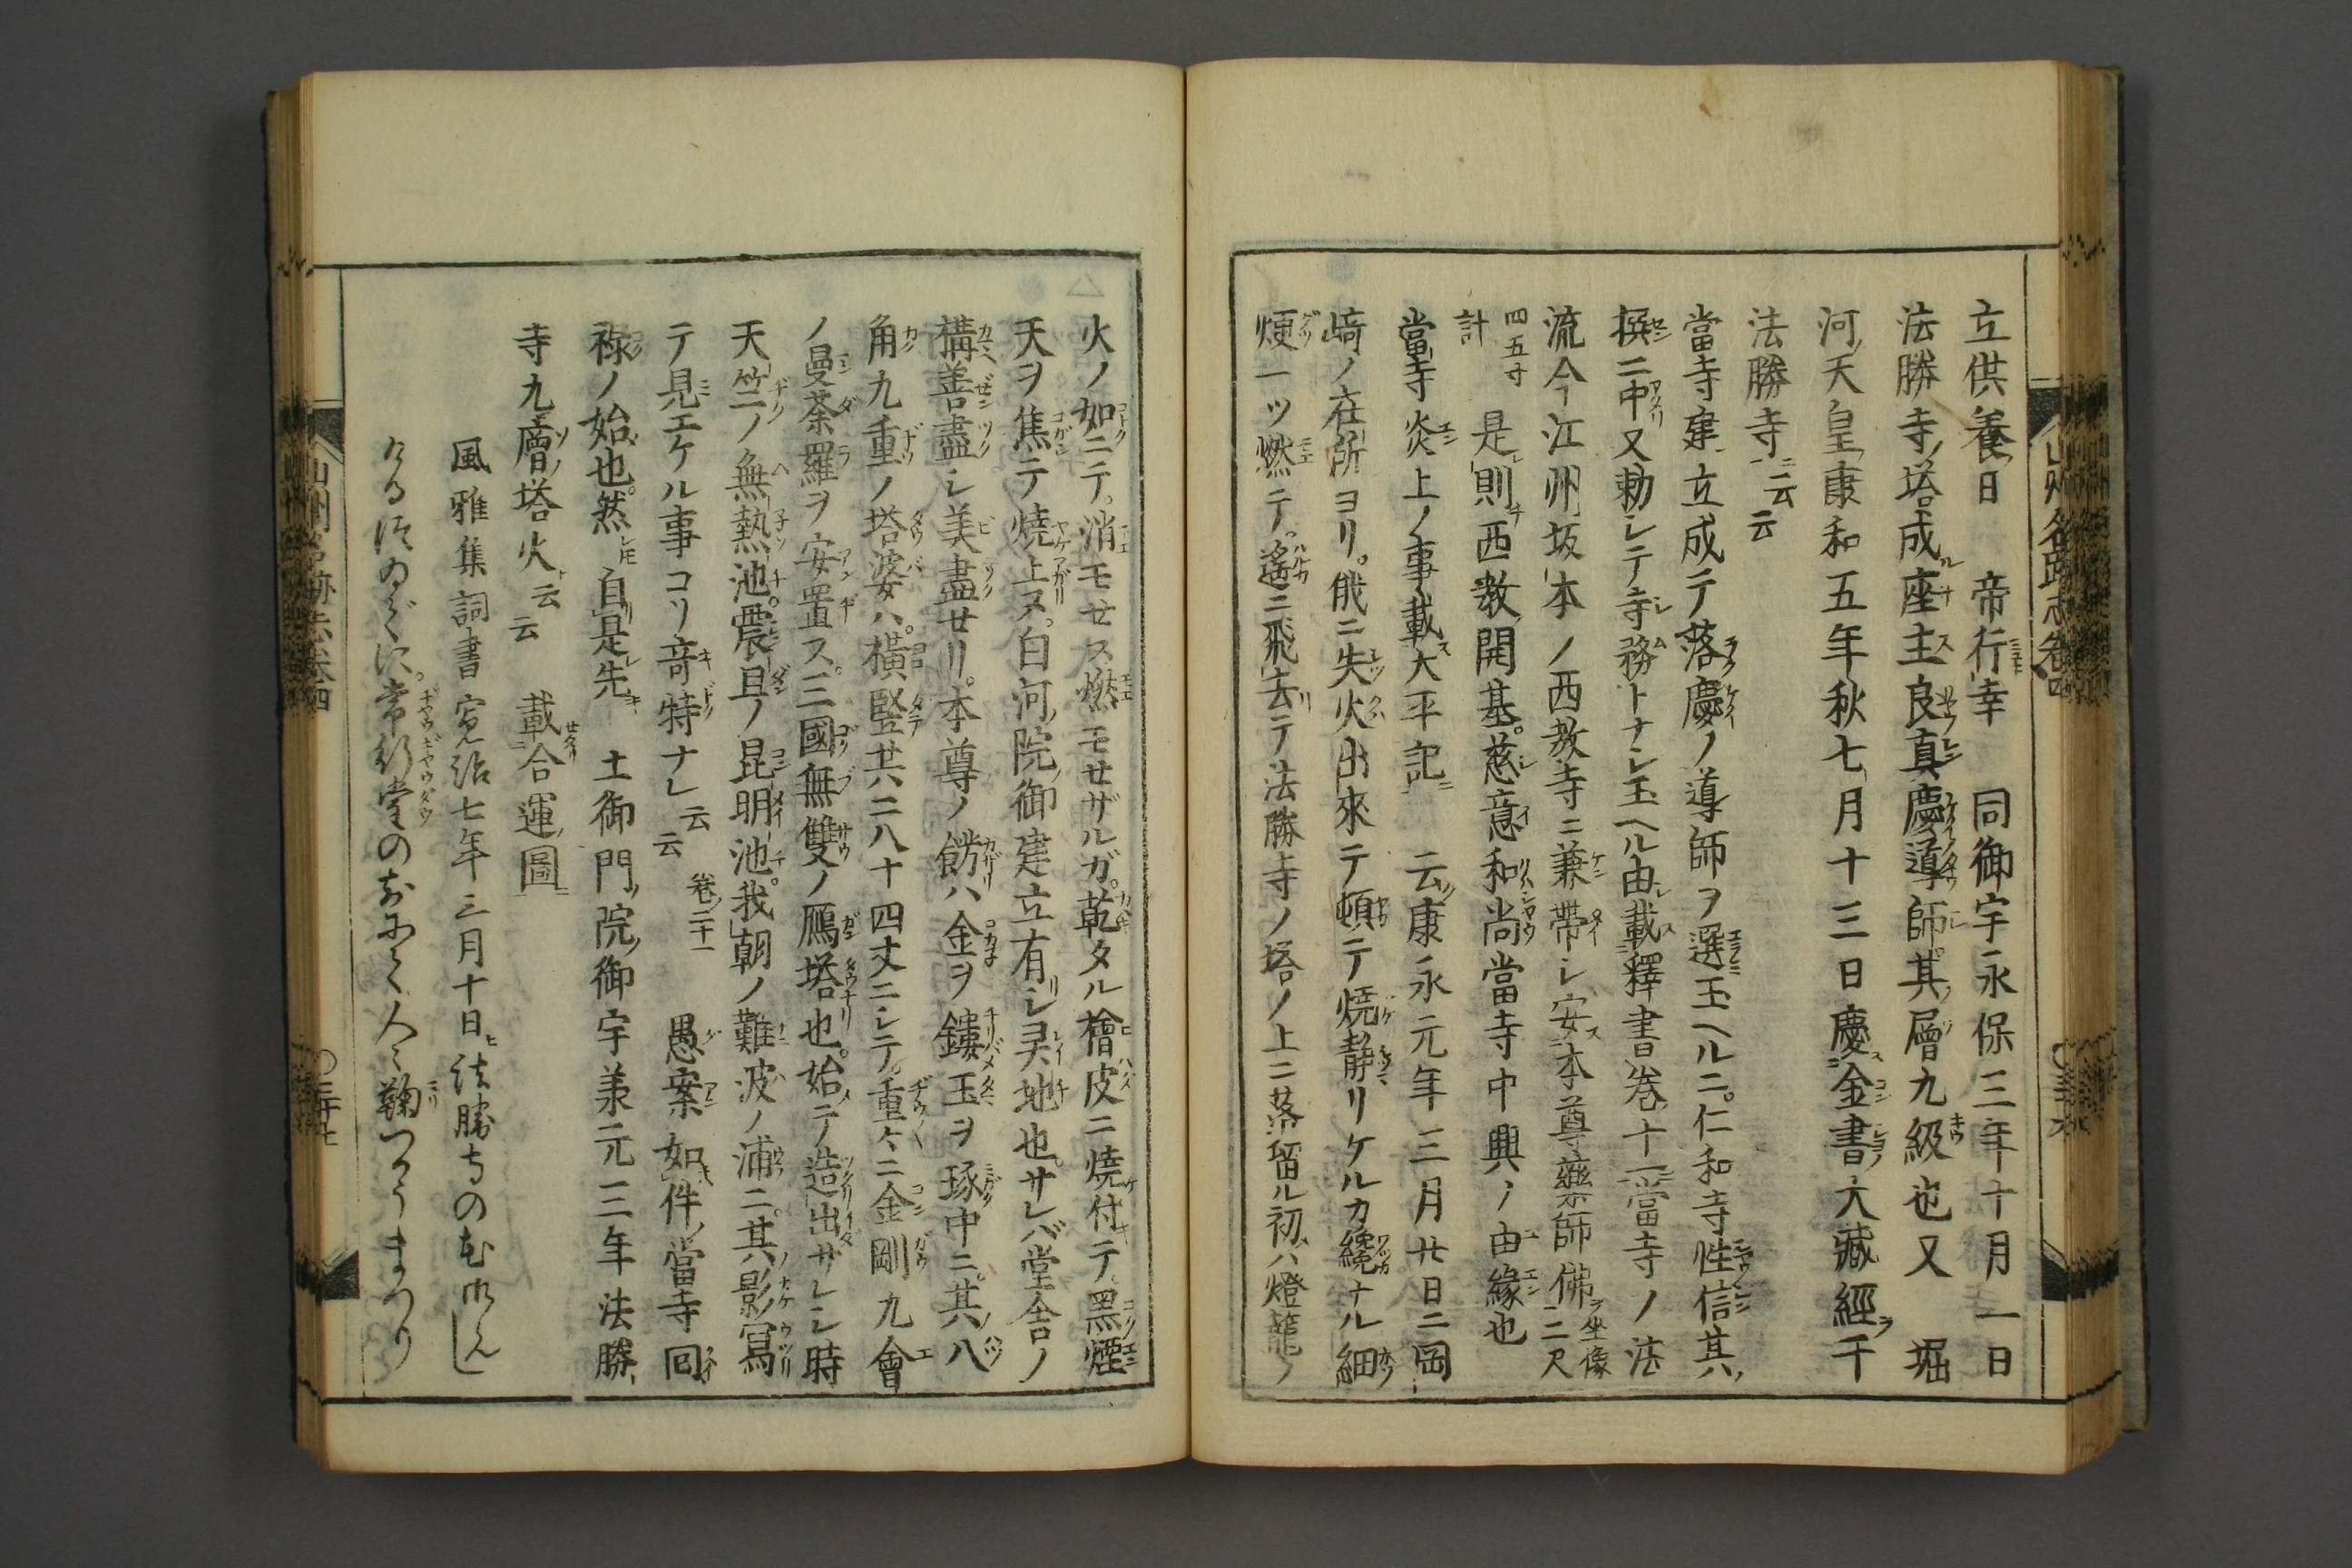 立供養日　帝行幸　同御宇永保三年十月一日
法勝寺塔成座主良真慶導師其層九級也又　堀
河天皇康和五年秋七月十三日慶金書大藏經于
法勝寺云云
當寺建立成テ落慶ノ導師ヲ選玉ヘルニ。仁和寺性信其
撰ニ中又勅シテ寺務トナシ玉ヘル由載釋書巻十一當寺ノ法
流今江州坂本ノ西教寺ニ兼帶シ安本尊藥師佛坐像二尺
四五寸計　是則西教開基。慈意和尚當寺中興ノ由緣也
當寺炎上ノ事載大平記　云康永元年三月廿日ニ岡
﨑ノ在所ヨリ。俄ニ失火出來テ頓テ燒静リケルカ纔ナル細
煙一ツ燃テ。遙ニ飛去テ法勝寺ノ塔ノ上ニ落留ル初ハ燈籠ノ
火ノ如ニテ。消モセス燃モせザルガ。乾タル檜皮ニ燒付テ。黑煙
天ヲ焦テ燒上ヌ。白河院御建立有シ灵地也。サレバ堂舎ノ
構善盡シ美盡せリ。本尊ノ餝ハ金ヲ鏤玉ヲ琢中ニ。其八
角九重ノ塔婆ハ。橫竪共ニ八十四丈ニシテ。重々ニ金剛九會
ノ曼荼羅ヲ安置ス。三國無雙ノ鴈塔也。始テ造出サレシ時
天竺ノ無熱池。震旦ノ昆明池。我朝ノ難波ノ浦ニ。其影寫
テ見エケル事コソ竒特ナレ云云　巻二十一　愚案如件當寺回
祿ノ始也。然自是先　土御門院御宇羕元三年法勝
寺九層塔火云云　載合運圖
風雅集詞書　寛治七年三月十日法勝寺の花御らん
ける次ゐでに。常行堂のまへにて人々鞠つかうまつり
山州名跡志巻四
山州名跡志巻四
〇三十七